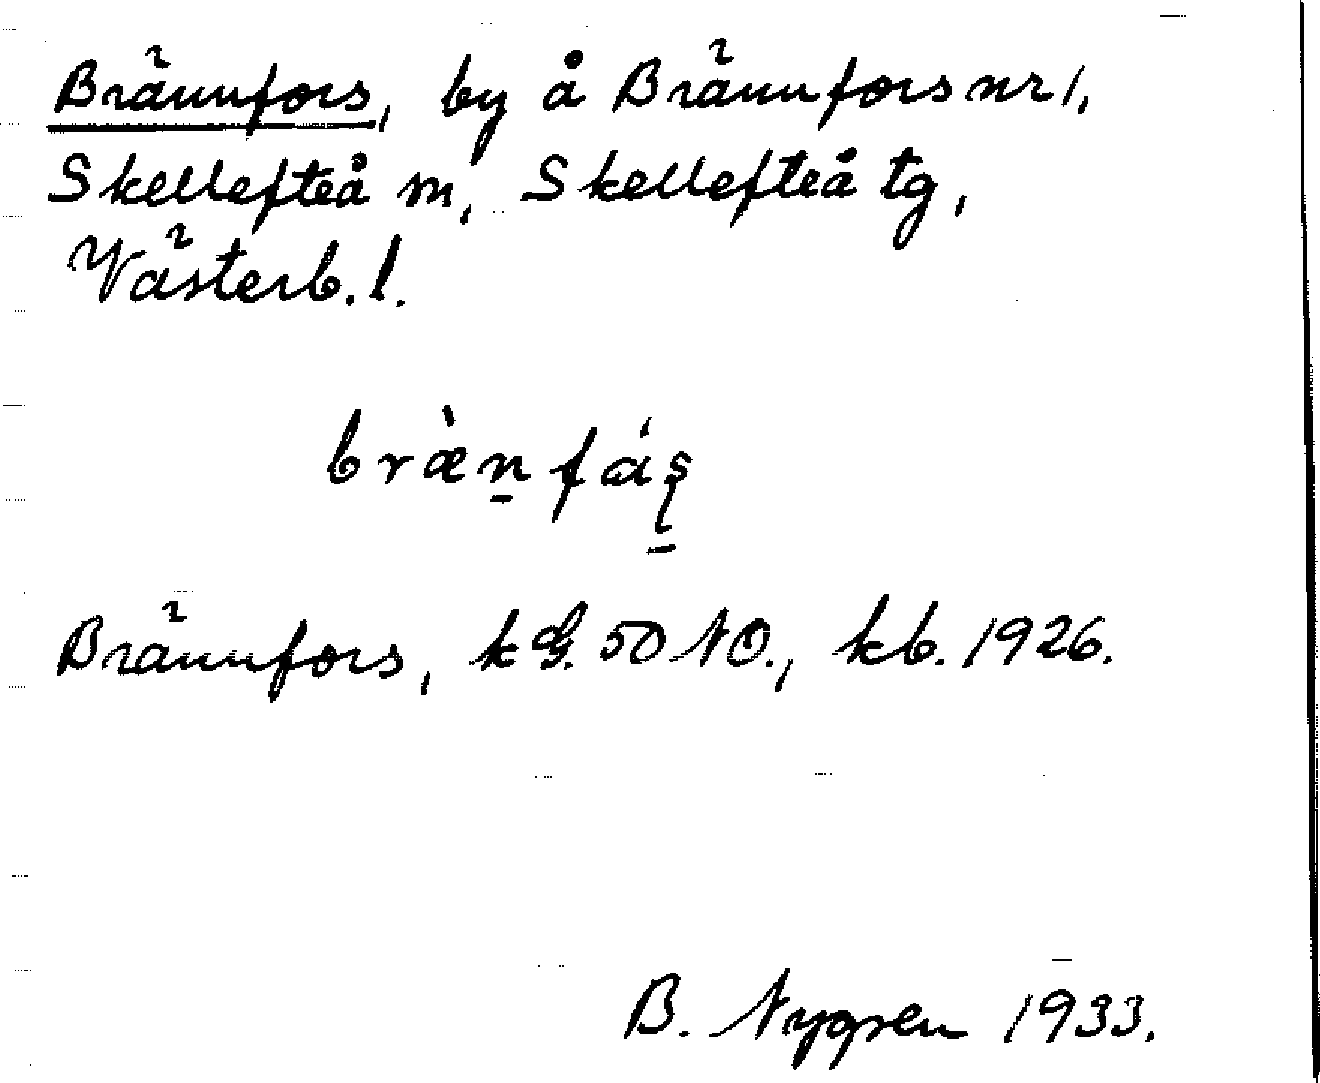 Brännfors, by å Brännfors nr 1,
Skellefteå m, Skellefteå tg,
Västerb. l.
bræ̀n̠fáʂ̠
Brännfors, k G. 50 NO., kb. 1926.
B. Nygren 1933.